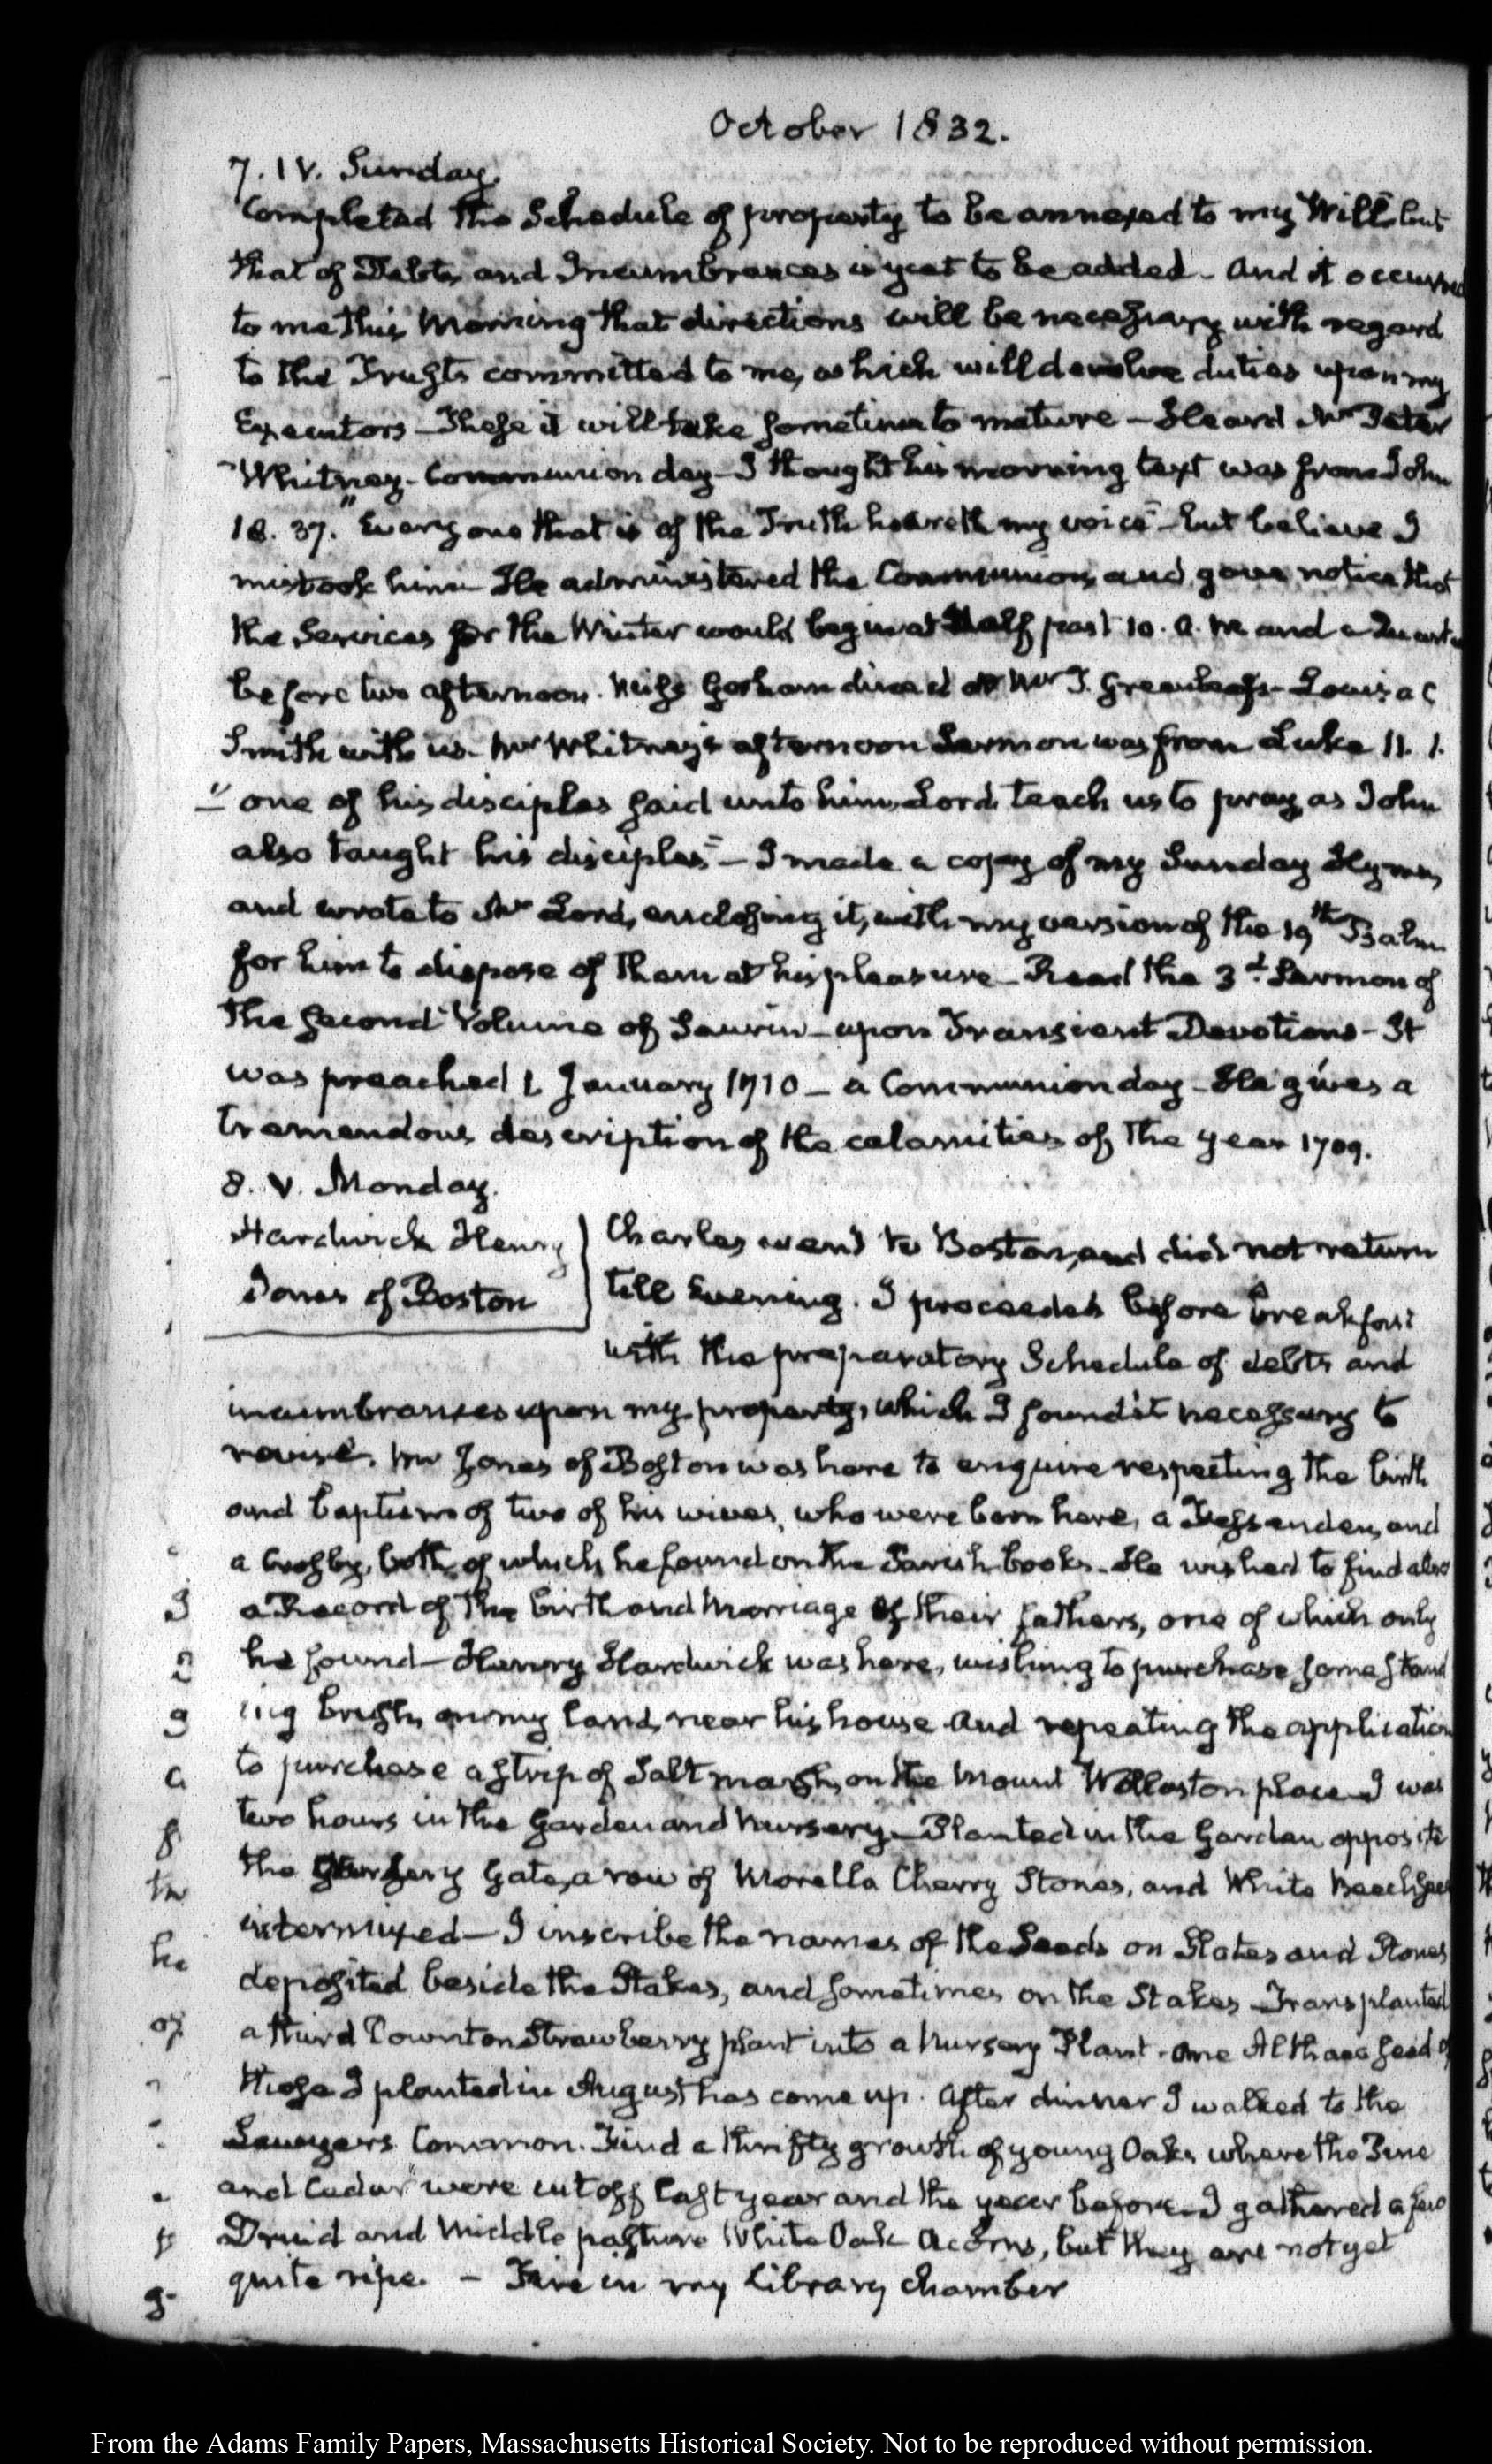 October 1832.
7. IV. Sunday.
Completed the Schedule of property to be annexed to my Will but
that of Debts, and Incumbrances is yet to be added - And it occurred
to me this Morning that directions will be necessary with regard
to the Trusts committed to me, which will devolve duties upon my
Executors - These it will take sometime to mature - Heard Mr Peter
Whitney - Communion day - I thought his morning text was from John
18. 37. "Every one that is of the Truth heareth my voice" - but believe I
mistook him - He administered the Communion, and gave notice that
the Services for the Winter would begin at Half past 10. A.M. and a Quarter
before two afternoon. Miss Gorham dined at Mr T. Greenleaf's - Louisa C
Smith with us. Mr Whitney's afternoon Sermon was from Luke 11. 1.
- "one of his disciples said unto him, Lord, teach us to pray, as John
also taught his disciples" - I made a copy of my Sunday Hymn,
and wrote to Mr Lord, enclosing it, with my version of the 19th Psalm
for him to dispose of them at his pleasure - Read the 3d. Sermon of
the second Volume of Saurin - upon Transient Devotions - It
was preached 1. January 1710 - a Communion day - He gives a
tremendous description of the calamities of the year 1709.
8. V. Monday.
Hardwick Henry
Jones of Boston
Charles went to Boston, and did not return
till Evening. I proceeded before breakfast
with the preparatory Schedule of debts and
incumbrances upon my property, which I found it necessary to
revise. Mr Jones of Boston was here to enquire respecting the birth
and baptism of two of his wives, who were born here, a and
a Crosby, both of which he found on the Parish books. He wished to find also
a Record of the birth and Marriage of their fathers, one of which only
he found - Henry Hardwick was here, wishing to purchase some stand
ing brush, on my land, near his house - And repeating the application
to purchase a strip of Salt marsh, on the Mount Wollaston place - I was
two hours in the Garden and Nursery - Planted in the Garden opposite
the Nursery Gate, a row of Morella Cherry Stones, and White Beech seed
intermixed - I inscribe the names of the Seeds on Slates and Stones
deposited beside the Stakes, and sometimes on the Stakes - Transplanted
a third Downton Strawberry plant into a Nursery Plant. One Althaea seed of
those I planted in August has come up. After dinner I walked to the
Sawyers Common. Find a thrifty growth of young Oaks where the Pine
and Cedar were cut off last year and the year before - I gathered a few
Druid and Middle pasture White Oak Acorns, but they are not yet
quite ripe. - Fire in my Library chamber
From the Adams Family Papers, Massachusetts Historical Society. Not to be reproduced without permission.